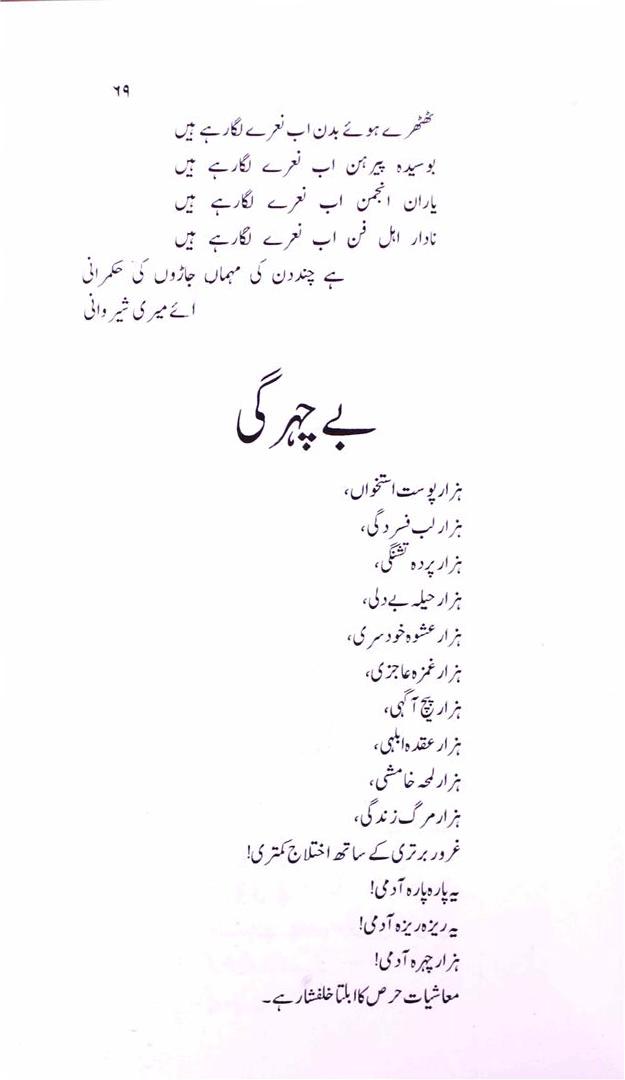 ۶۹
ٹھٹھرے ہوئے بدن اب نعرے لگا رہے ہیں
بوسیدہ پیرہن اب نعرے لگا رہے ہیں
یاران انجمن اب نعرے لگا رہے ہیں
نادار اہل فن اب نعرے لگا رہے ہیں
ہے چند دن کی مہماں جاڑوں کی حکمرانی
ائے میری شیروانی
بے چہرگی
ہزار پوست استخواں،
ہزار لب فسردگی،
ہزار پردہ تشنگی،
ہزار حیلہ بے دلی،
ہزار عشوہ خودسری،
ہزار غمزہ عاجزی،
ہزار پیچ آگہی،
ہزار عقدہ ابلہی،
ہزار لمحہ خامشی،
ہزار مرگ زندگی،
غرور برتری کے ساتھ اختلاج کمتری!
یہ پارہ پارہ آدمی!
یہ ریزہ ریزہ آدمی!
ہزار چہرہ آدمی!
معاشیات حرص کا ابلتا خلفشار ہے۔